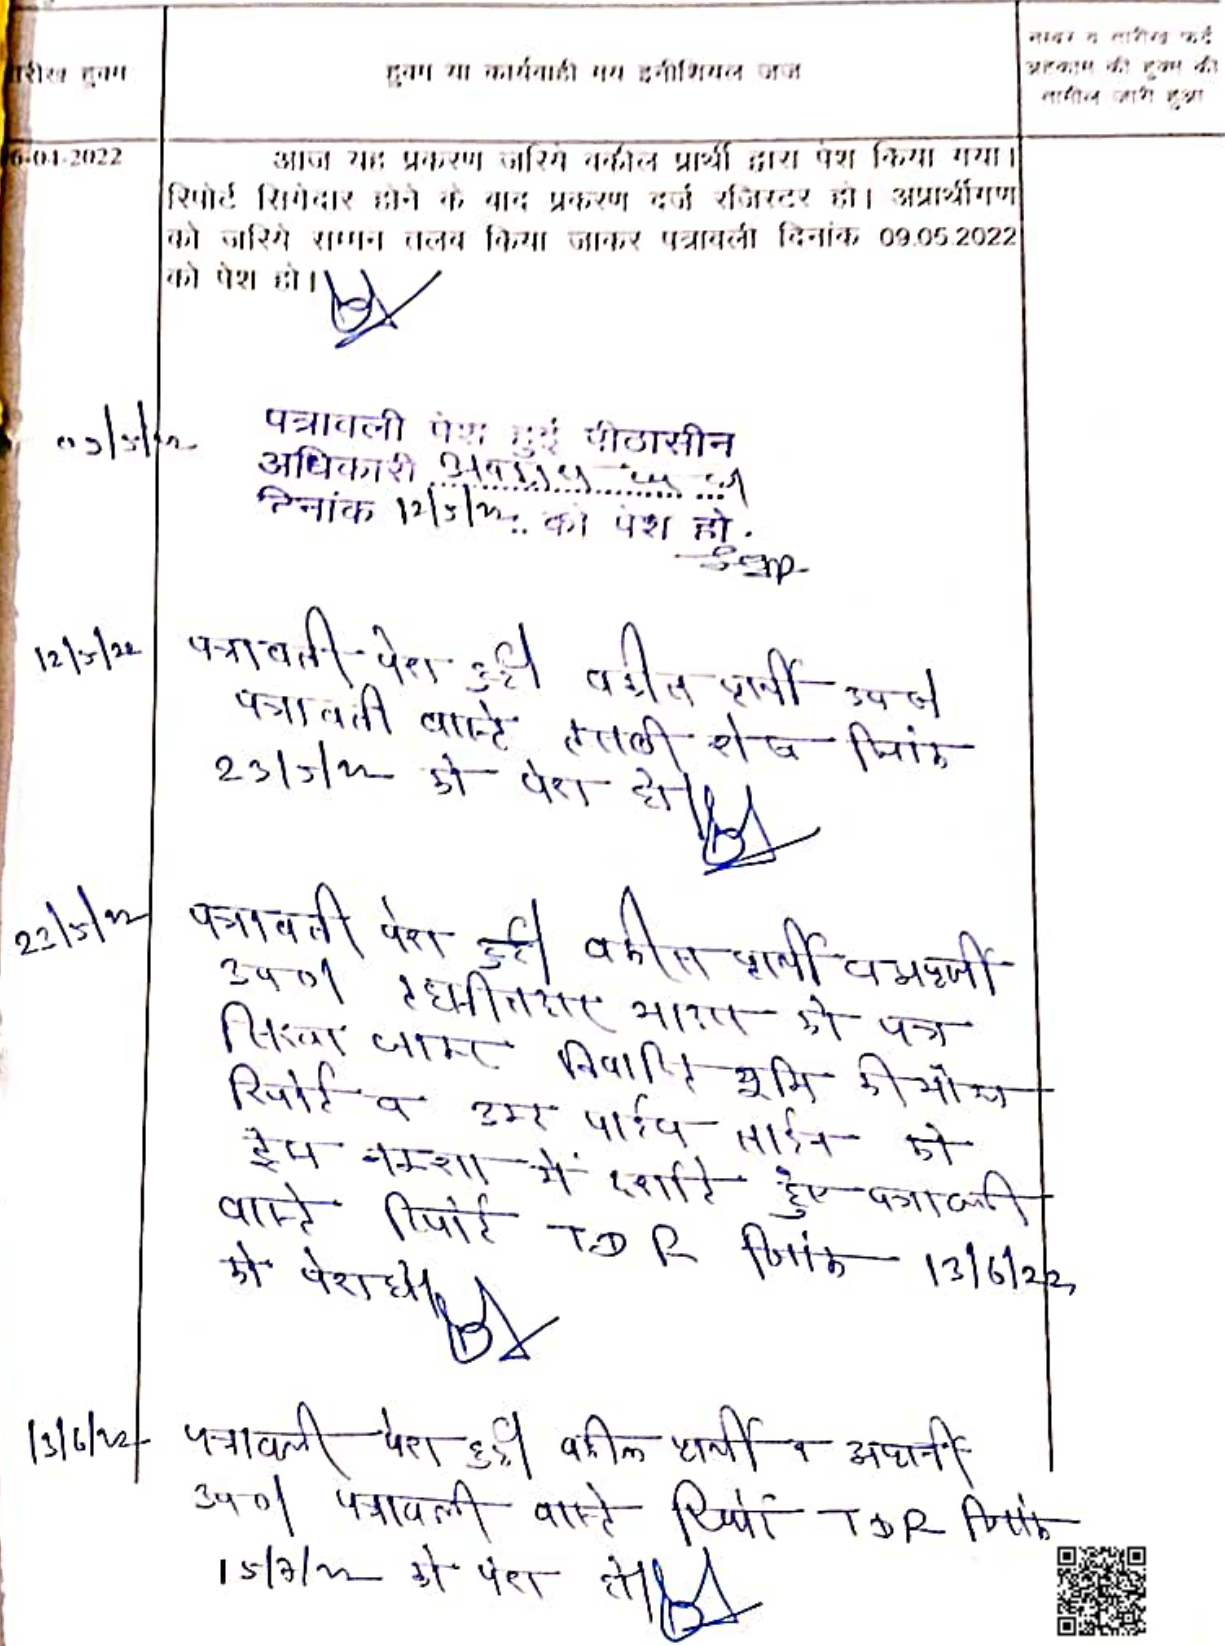 तारीख हुक्म
हुक्म या कार्यवाही मय इनीशियल जज
नम्बर व तारीख फर्द
अहकाम की हुक्म की
तामील जारी हुआ
6-04-2022
आज यह प्रकरण जरिये वकील प्रार्थी द्वारा पेश किया गया।
रिपोर्ट सिगेदार होने के बाद प्रकरण दर्ज रजिस्टर हो। अप्रार्थीगण
को जरिये सम्मन तलब किया जाकर पत्रावली दिनांक 09.05.2022
को पेश हो।
पत्रावली पेश हुई पीठासीन
अधिकारी
दिनांक 12/5/22 को पेश हो.
12/5/22
पत्रावली पेश हुई वकील प्रार्थी उप०
पत्रावली वास्ते तलबी शेष दिनांक
23/5/22 को पेश हो।
23/5/22
पत्रावली पेश हुई वकील प्रार्थी व अप्रार्थी
उप०। तहसीलदार को पत्र
लिखा जाकर भूमि की मौका
रिपोर्ट व उक्त पाईप लाईन को
ट्रेस नक्शा में दर्शाते हुए पत्रावली
वास्ते रिपोर्ट TDR दिनांक 13/6/22
को पेश हो।
13/6/22
पत्रावली पेश हुई वकील प्रार्थी व अप्रार्थी
उप०। पत्रावली वास्ते रिपोर्ट TDR दिनांक
15/7/22 को पेश हो।